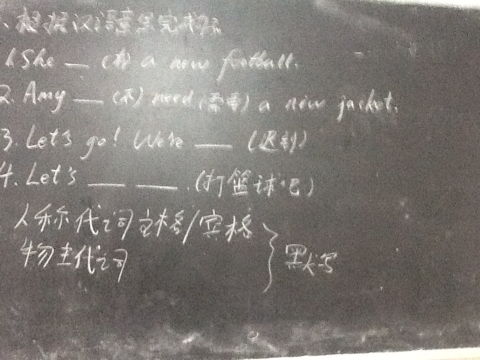 、根据汉语意思完成句子
1.She __ (有) a new football.
2. Amy __ (不) need (需要) a new jacket.
3. Let's go! We're __ (迟到)
4. Let's __ __ .(打篮球吧)
人称代词主格/宾格
物主代词 } 默写